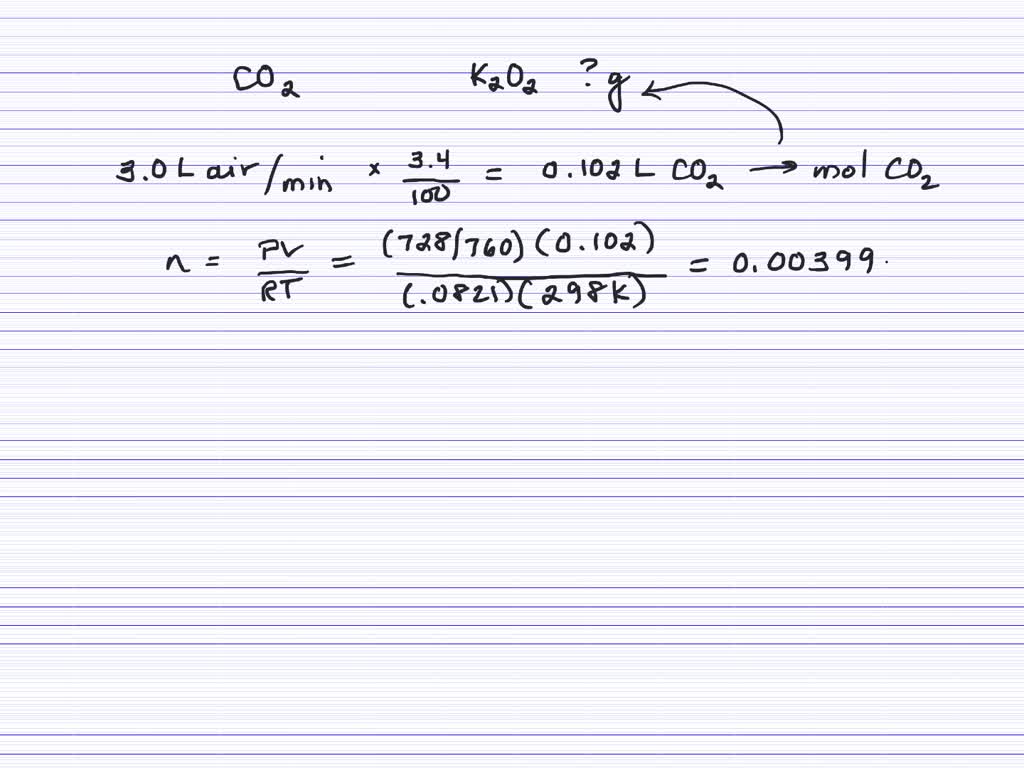 CO₂ K₂O₂ ? g
3.0 L air/min × 3.4/100 = 0.102 L CO₂ → mol CO₂
n = PV/RT = (728/760)(0.102)/(.0821)(298K) = 0.00399